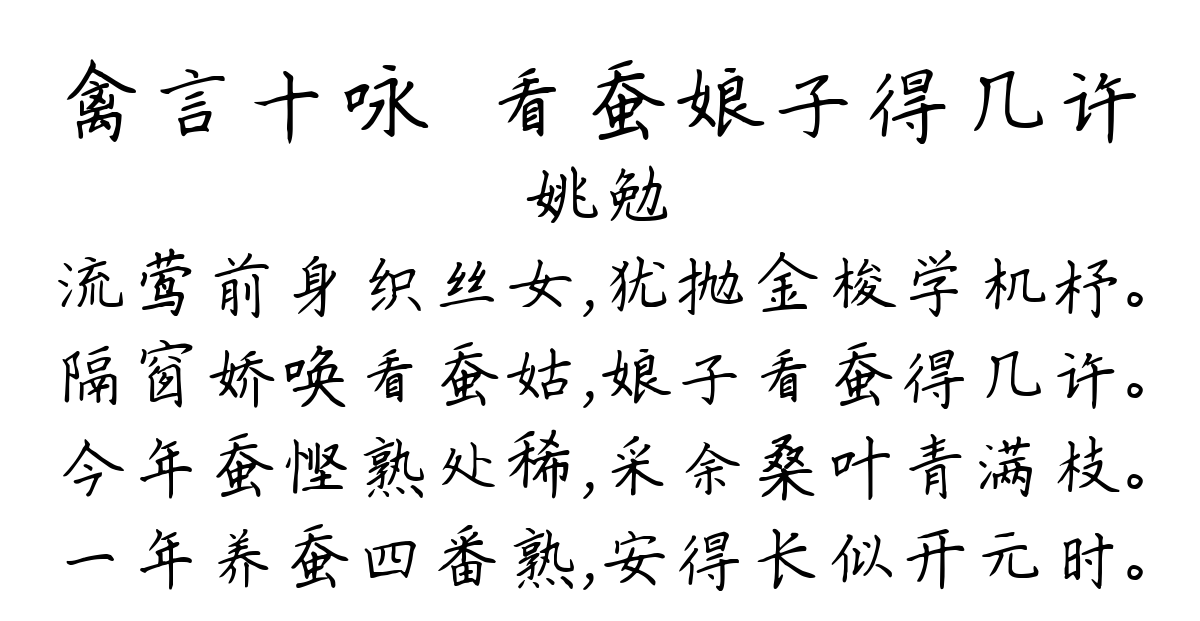 禽言十咏 看蚕娘子得几许
姚勉
流莺前身织丝女,犹抛金梭学机杼。
隔窗娇唤看蚕姑,娘子看蚕得几许。
今年蚕悭熟处稀,采余桑叶青满枝。
一年养蚕四番熟,安得长似开元时。